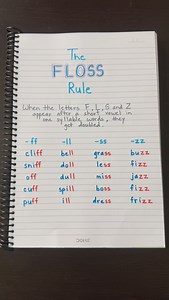 The
FLOSS
Rule
When the letters F, L, S and Z
appear after a short vowel in
one syllable words, they
get doubled.
-ff -ll -ss -zz
cliff bell grass buzz
sniff doll less fizz
off dull miss jazz
cuff spill boss fizz
puff ill dress frizz